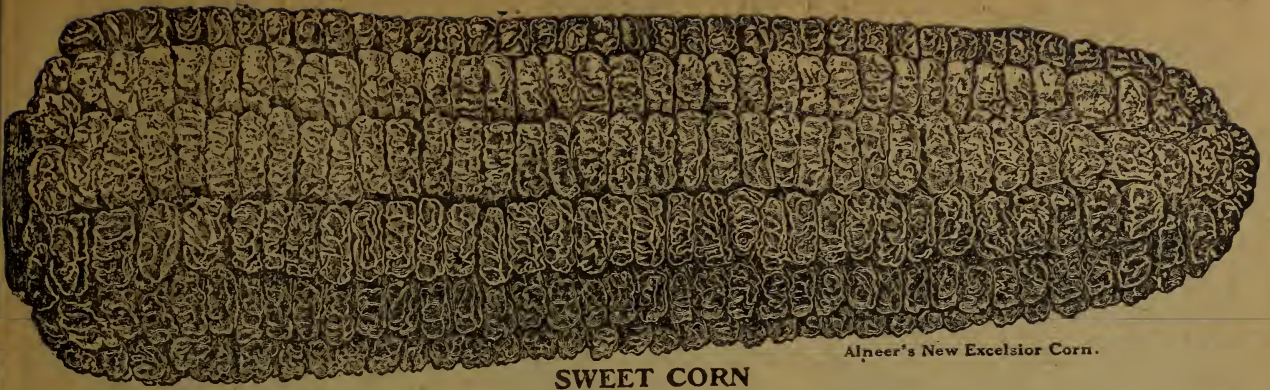 Alneer's New Excelsior Corn.
SWEET CORN